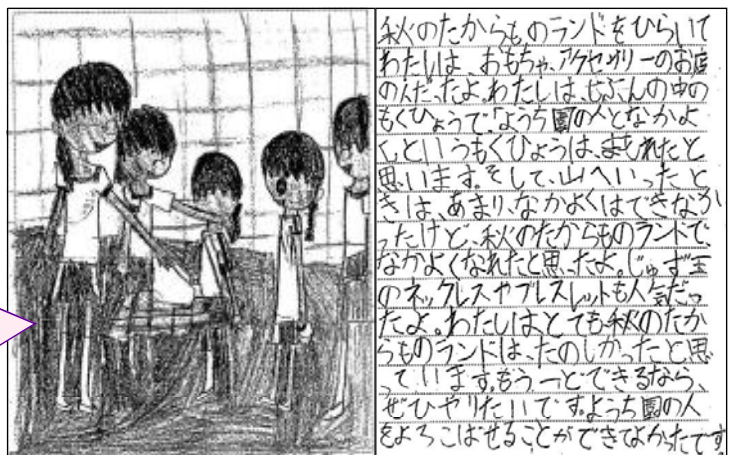 秋のたからものランドをひらいて
わたしは、おもちゃ、アクセサリーのお店
の人だったよ。わたしは、じぶんの中の
もくひょうで、「ようち園の人となかよ
く」というもくひょうは、まもれたと
思います。そして、山へいったと
きは、あまり、なかよくはできなか
ったけど、秋のたからものランドで、
なかよくなれたと思ったよ。じゅず玉
のネックレスやブレスレットも人気だっ
たよ。わたしはとても秋のたか
らものランドは、たのしかったと思
っています。もう一どできるなら、
ぜひやりたいです。ようち園の人
をよろこばせることができてよかったです。